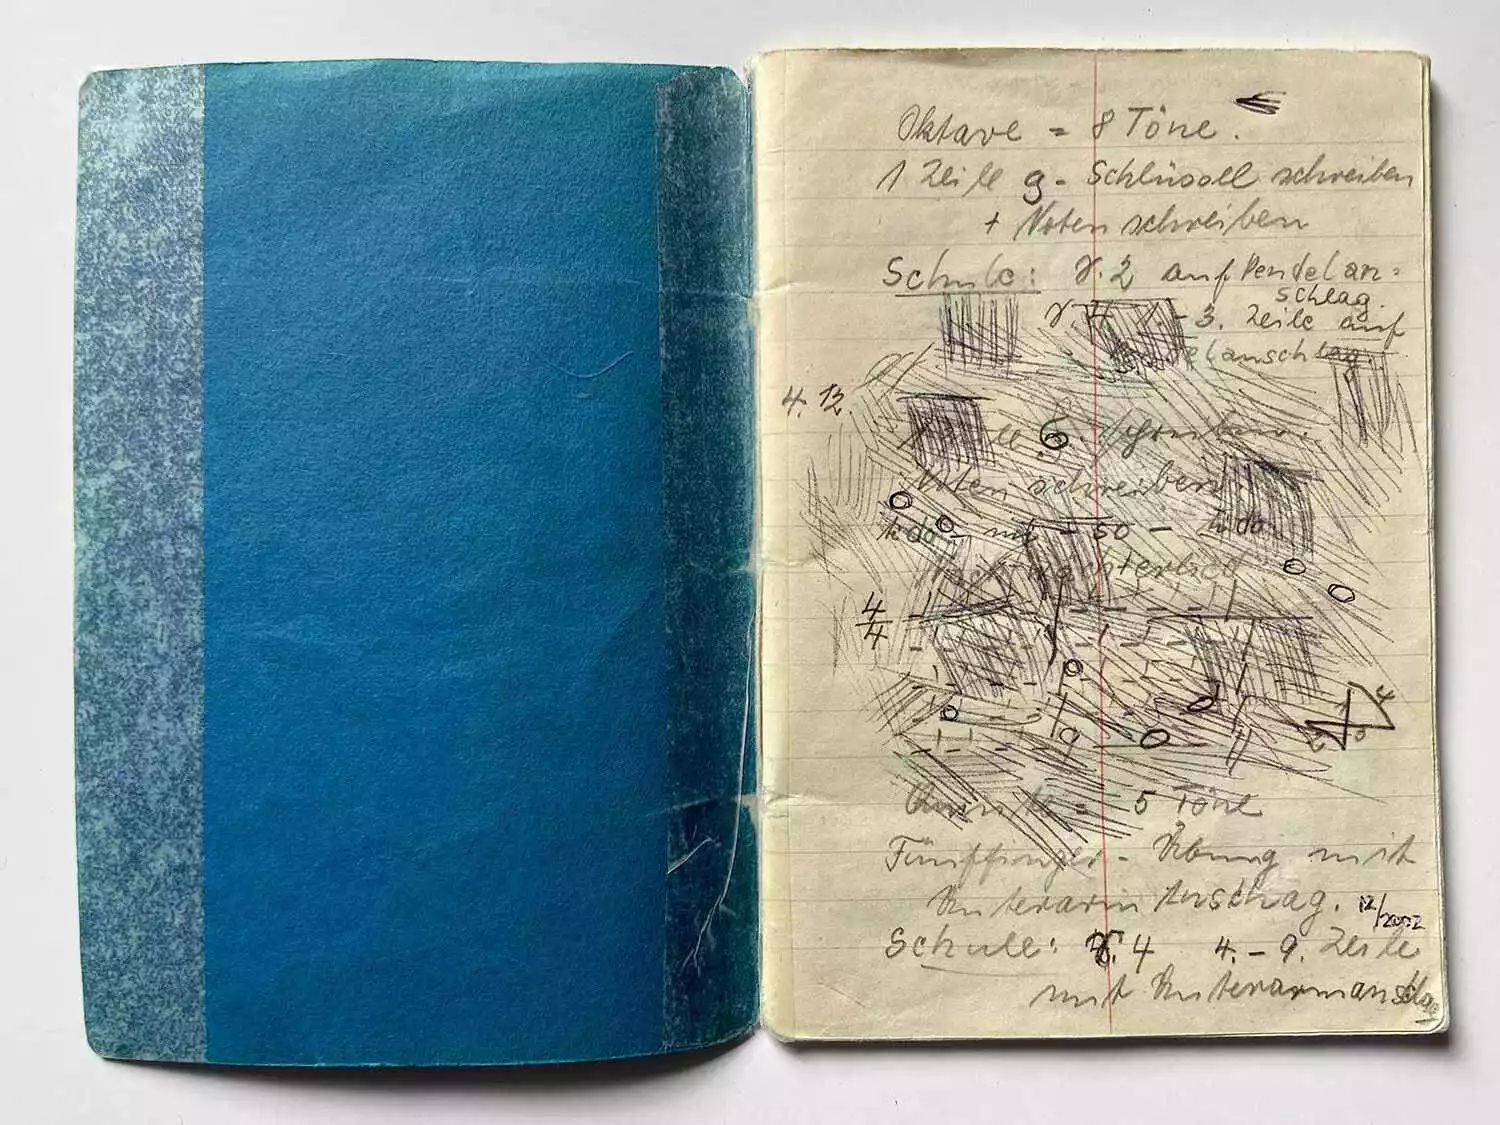 Oktave = 8 Töne.
1 Zeile g-Schlüssell schreiben
+ Noten schreiben
Schule: S. 2 auf Pendelan=
schlag.
S. 4 1.-3. Zeile auf
elanschlag
4. 12.
6.
Noten schreiben
do - mi - so - do
4/4
4
Quinte = 5 Töne
Fünffinger-Übung mit
Unterarm Anschlag.
12/2002
Schule: S. 4 4.-9. Zeile
mit Unterarmanschlag